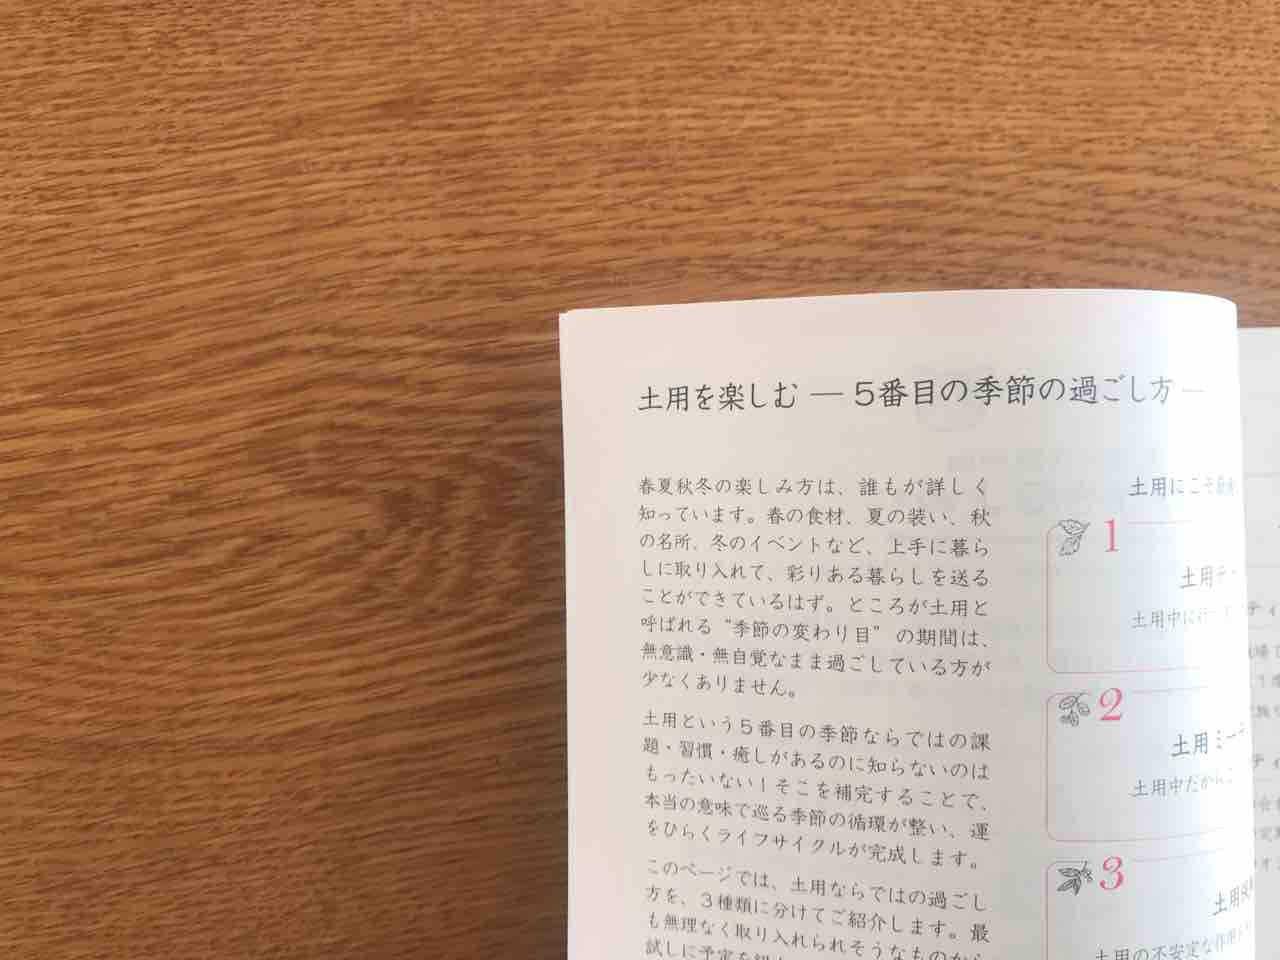 土用を楽しむ ― 5番目の季節の過ごし方 ―
春夏秋冬の楽しみ方は、誰もが詳しく
知っています。春の食材、夏の装い、秋
の名所、冬のイベントなど、上手に暮ら
しに取り入れて、彩りある暮らしを送る
ことができているはず。ところが土用と
呼ばれる“季節の変わり目”の期間は、
無意識・無自覚なまま過ごしている方が
少なくありません。
土用という5番目の季節ならではの課
題・習慣・癒しがあるのに知らないのは
もったいない！そこを補完することで、
本当の意味で巡る季節の循環が整い、運
をひらくライフサイクルが完成します。
このページでは、土用ならではの過ごし
方を、3種類に分けてご紹介します。最
も無理なく取り入れられそうなものから
試しに予定を
土用にこそ
1
土用デ
土用中に
2
土用ミー
土用中だから
3
土用
土用の不安定な作用